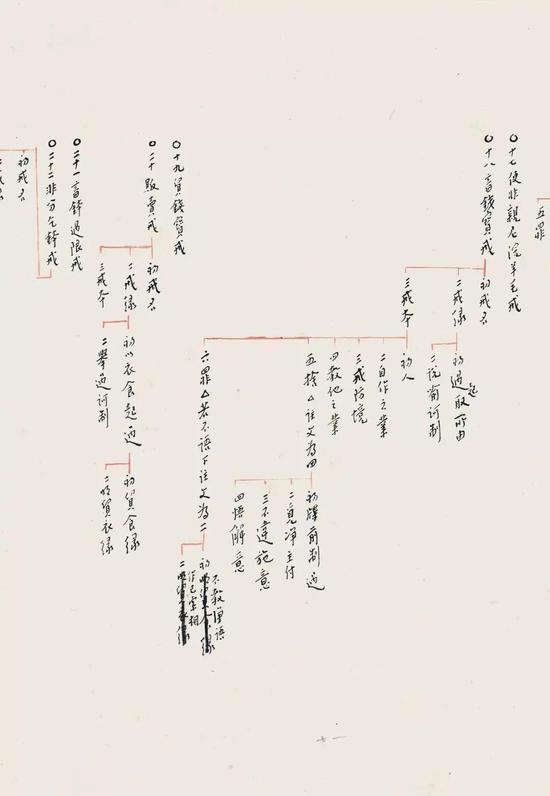 五罪
十七使非親尼浣羊毛戒
十八畜錢寶戒
初戒名
二戒緣
初過起取所由
二從有訶制
三戒本
初人
二自作之業
三戒防境
四教他之業
五捨△注文為四
初牒前制過
二見淨主付
三不違施意
四悟解意
六罪△若不語下注文為二
初
不教淨語
二
作已宰相
十九貿錢寶戒
二十販賣戒
初戒名
二戒緣
初以衣食起過
初貿食緣
二明貿衣緣
二舉過訶制
三戒本
二十一畜鉢過限戒
二十二非分乞鉢戒
初戒名
十一